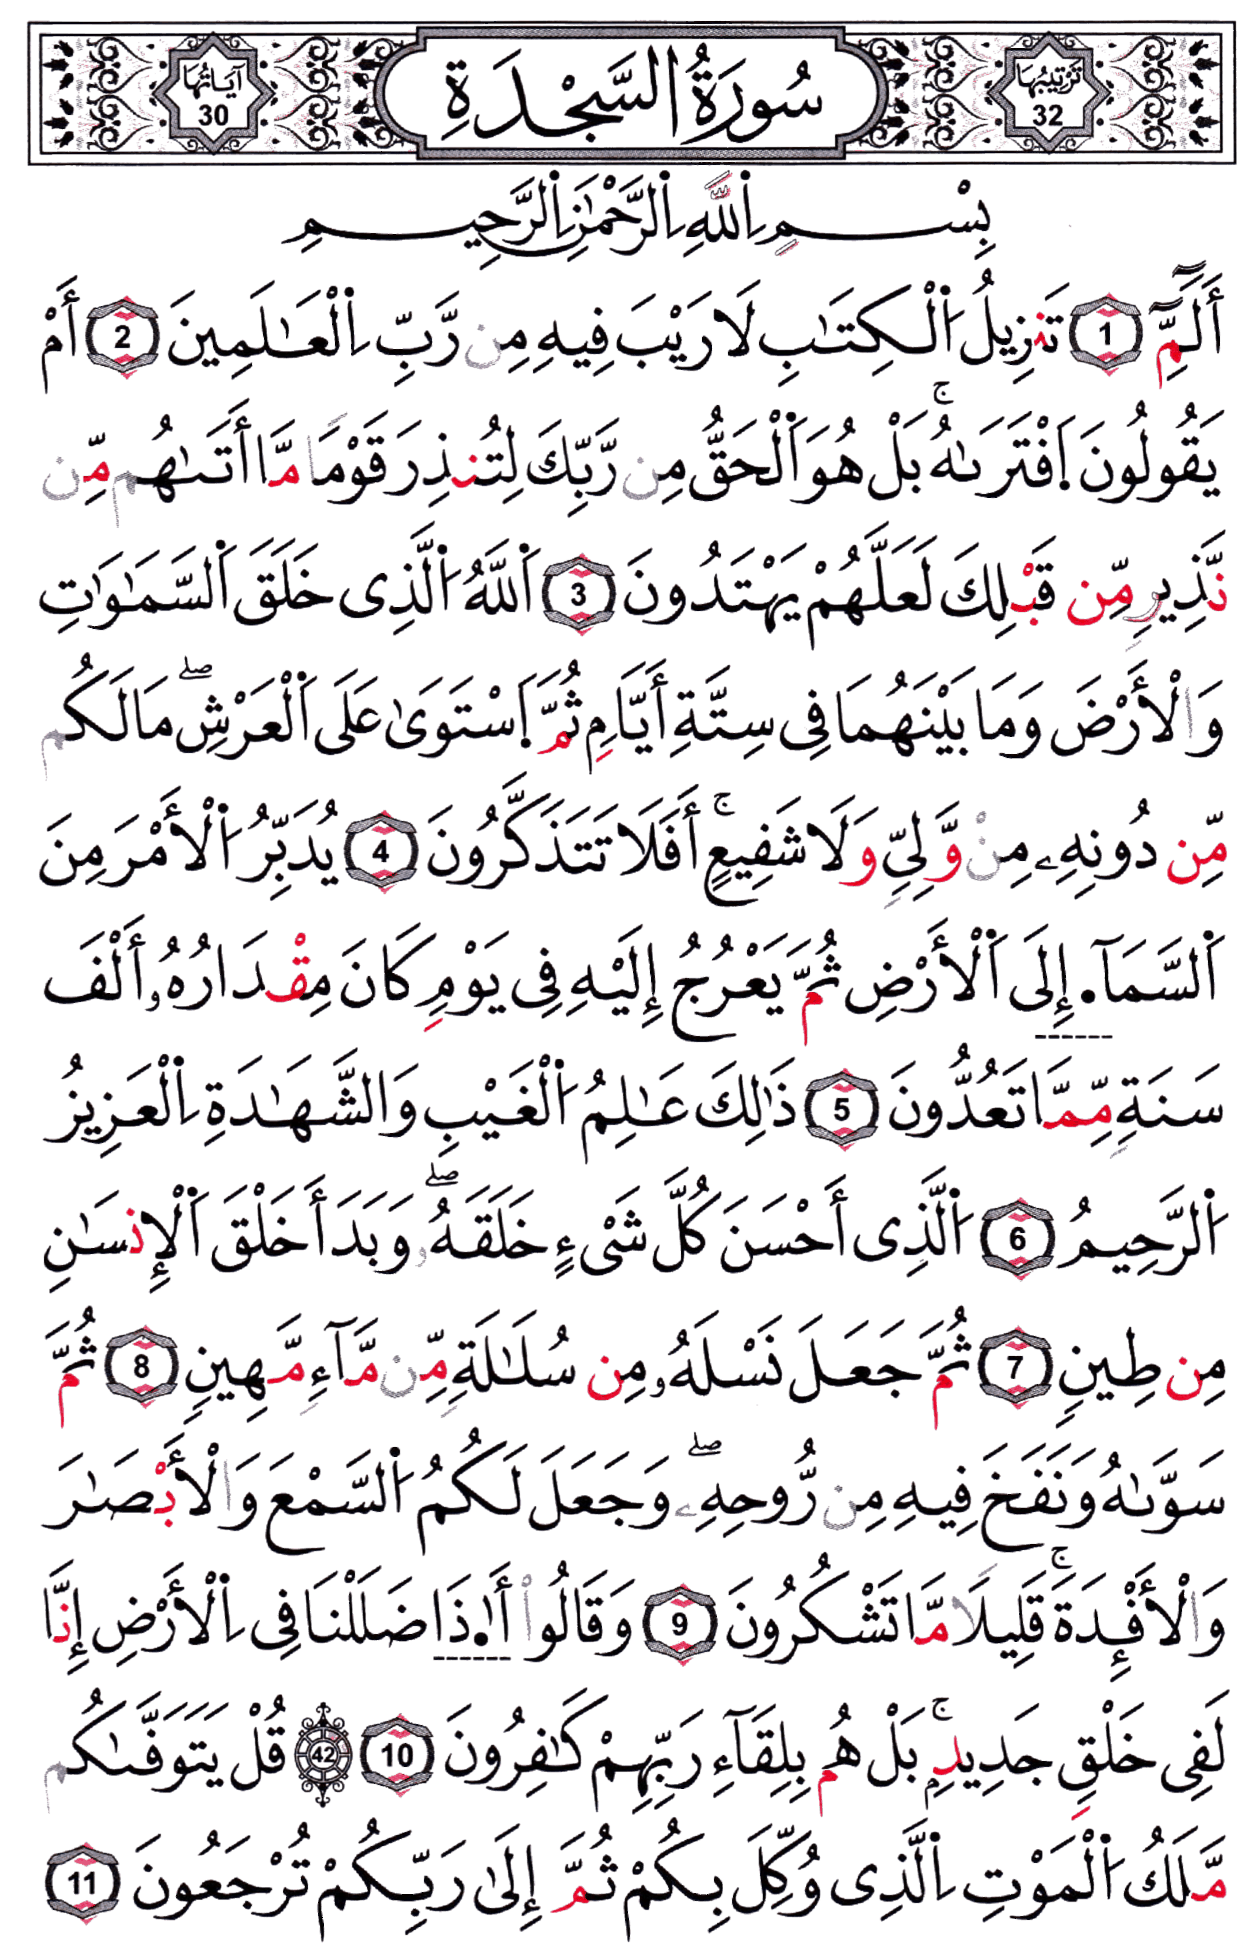 تَرْتِيبُهَا 32 سُورَةُ السَّجْدَةِ آيَاتُهَا 30
بِسْمِ اِ۬للَّهِ اِ۬لرَّحْمَٰنِ اِ۬لرَّحِيمِ
أَلَٓمِّٓۖ 1 تَنزِيلُ اُ۬لْكِتَٰبِ لَا رَيْبَ فِيهِ مِن رَّبِّ اِ۬لْعَٰلَمِينَ 2 أَمْ
يَقُولُونَ اَ۪فْتَرَىٰهُۚ بَلْ هُوَ اَ۬لْحَقُّ مِن رَّبِّكَ لِتُنذِرَ قَوْمًا مَّا أَتَىٰهُم مِّن
نَّذِيرٍ مِّن قَبْلِكَ لَعَلَّهُمْ يَهْتَدُونَ 3 اَ۬للَّهُ اُ۬لَّذِى خَلَقَ اَ۬لسَّمَٰوَٰتِ
وَالْأَرْضَ وَمَا بَيْنَهُمَا فِى سِتَّةِ أَيَّامٍ ثُمَّ اَ۪سْتَوَىٰ عَلَى اَ۬لْعَرْشِۖ مَا لَكُم
مِّن دُونِهِۦ مِنْ وَّلِىٍّ وَلَا شَفِيعٍۚ أَفَلَا تَتَذَكَّرُونَ 4 يُدَبِّرُ اُ۬لْأَمْرَ مِنَ
اَ۬لسَّمَآ۪. إِلَى اَ۬لْأَرْضِ ثُمَّ يَعْرُجُ إِلَيْهِ فِى يَوْمٍ كَانَ مِقْدَارُهُۥ أَلْفَ
سَنَةٍ مِّمَّا تَعُدُّونَ 5 ذَٰلِكَ عَٰلِمُ اُ۬لْغَيْبِ وَالشَّهَٰدَةِ اِ۬لْعَزِيزُ
اُ۬لرَّحِيمُ 6 اُ۬لَّذِى أَحْسَنَ كُلَّ شَىْءٍ خَلَقَهُۥۖ وَبَدَأَ خَلْقَ اَ۬لْإِنسَٰنِ
مِن طِينٍ 7 ثُمَّ جَعَلَ نَسْلَهُۥ مِن سُلَٰلَةٍ مِّن مَّآءٍ مَّهِينٍ 8 ثُمَّ
سَوَّىٰهُ وَنَفَخَ فِيهِ مِن رُّوحِهِۦۖ وَجَعَلَ لَكُمُ اُ۬لسَّمْعَ وَالْأَبْصَٰرَ
وَالْأَفْـِٕدَةَۚ قَلِيلًا مَّا تَشْكُرُونَ 9 وَقَالُوا۟ أَ۟.ذَا ضَلَلْنَا فِى اِ۬لْأَرْضِ إِنَّا
لَفِى خَلْقٍ جَدِيدٍۚ بَلْ هُم بِلِقَآءِ رَبِّهِمْ كَٰفِرُونَ 10 42 قُلْ يَتَوَفَّىٰكُم
مَّلَكُ اُ۬لْمَوْتِ اِ۬لَّذِى وُكِّلَ بِكُمْ ثُمَّ إِلَىٰ رَبِّكُمْ تُرْجَعُونَ 11